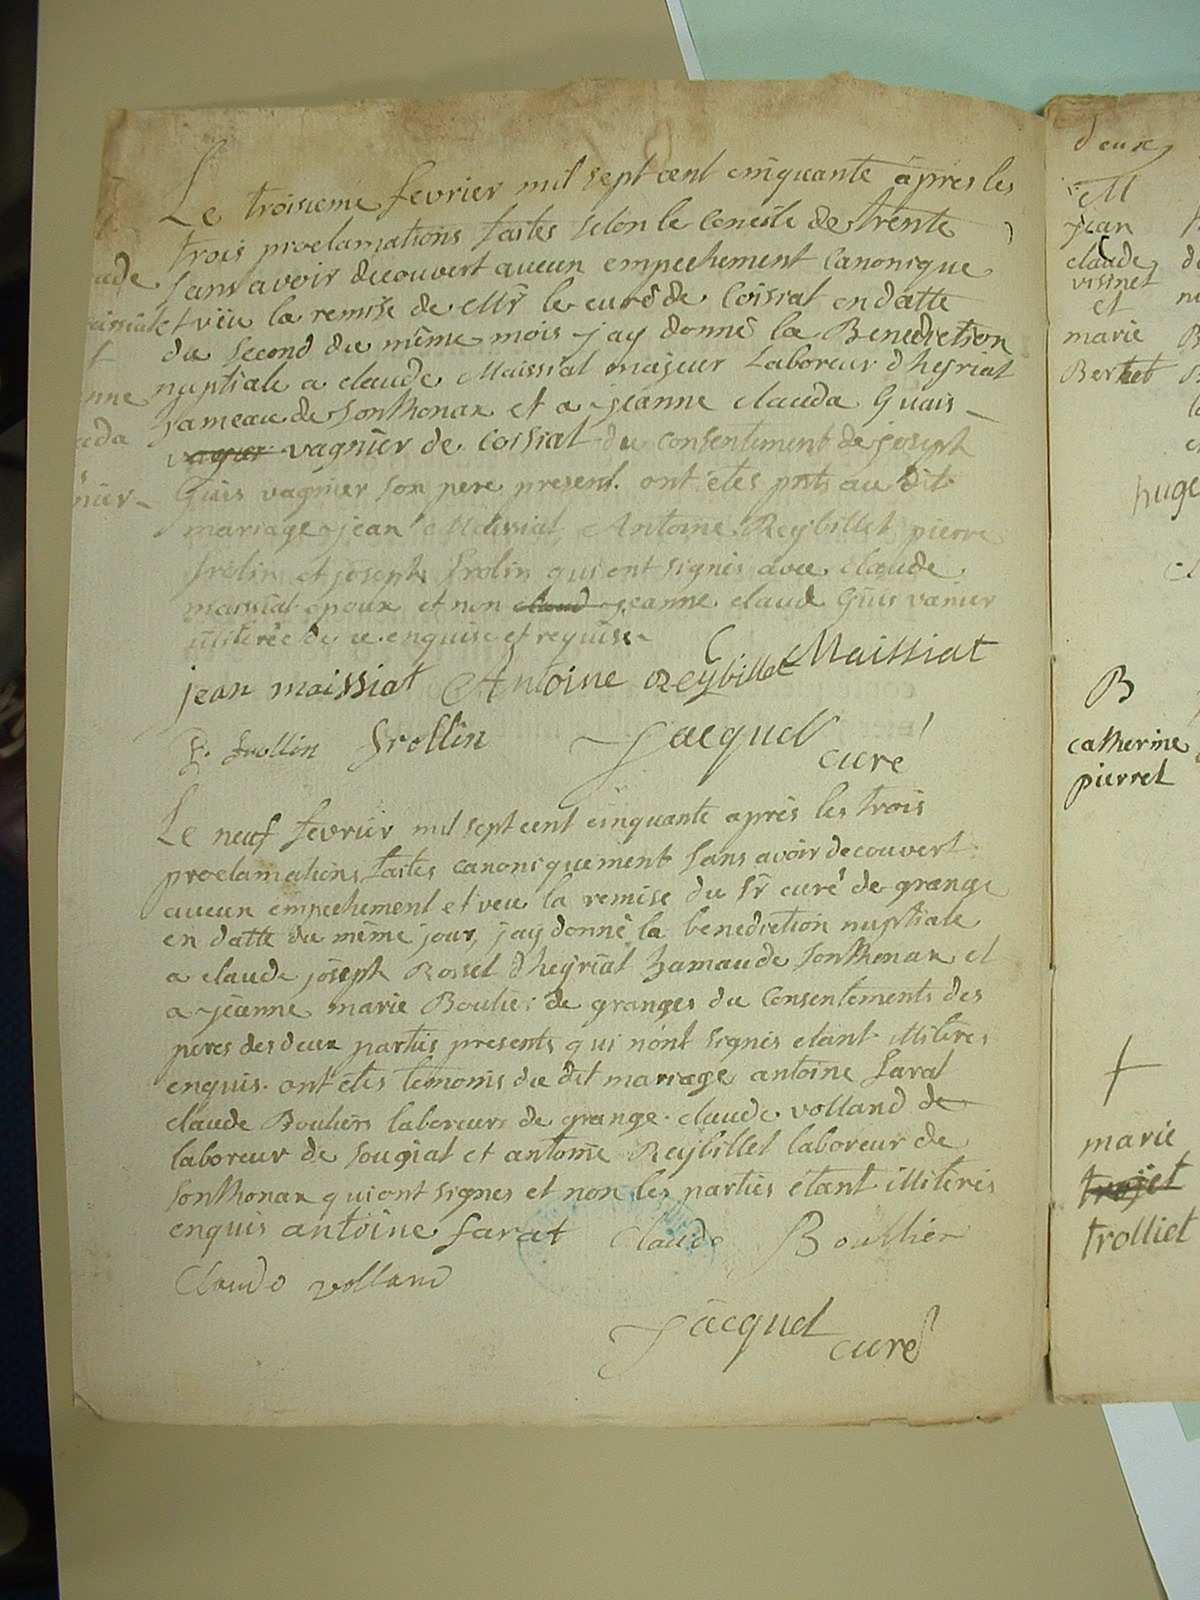 Le troisieme fevrier mil sept cent cinquante après les
trois proclamations faites selon le concile de trente
sans avoir decouvert aucun empechement canonique
et vüe la remise de Mr le curé de Coisiat en datte
du second du même mois jay donné la Benediction
nuptiale a claude Maissiat majeur Laboreur d'heyriat
hameau de Sonthonax et a jeanne clauda Guais
vagnier vagnier de Cossiat du consentement de joseph
Guis vagnier son pere present. ont étés pnts au dit
mariage jean Maissiat, Antoine Reybillet pierre
frolin et joseph frolin qui ont signés avec claude
massiat epoux et non claud jeanne claud Guis vanier
illiterée de ce enquise et requise
jean maissiat Antoine Reybillet C Maissiat
p. frollin frollin Jacquet
curé
Le neuf fevrier mil sept cent cinquante après les trois
proclamations faites canoniquement sans avoir decouvert
aucun empechement et veu la remise du Sr curé de grange
en datte du même jour, jay donné la benediction nuptiale
a claude joseph Rosset d'heyriat hamaude Sonthonax et
a jeanne marie Boulier de granges du Consentements des
peres des deux partis presents qui n'ont signés etant illiteres
enquis. ont étés temoins du dit mariage antoine farat
claude Bouliers laboreurs de grange. claude volland de
laboreur de Sougiat et antoine Reybillet laboreur de
Sonthonax qui ont signes et non les parties étant illiterés
enquis antoine farat Claude Boullier
Claude volland
Jacquet
curé
deux
M
jean
claude
visinet
et
marie
Berthet
B
catherine
pierret
marie
trojet
trolliet